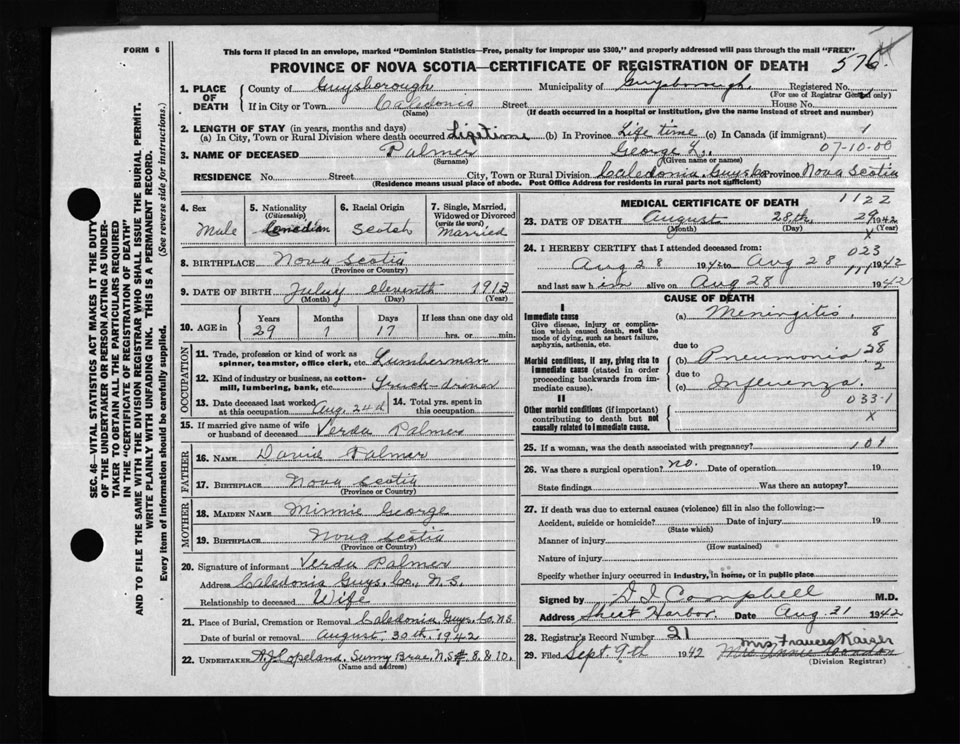 FORM 6
This form if placed in an envelope, marked "Dominion Statistics—Free, penalty for improper use $300," and properly addressed will pass through the mail "FREE"
PROVINCE OF NOVA SCOTIA—CERTIFICATE OF REGISTRATION OF DEATH 576
1. PLACE OF DEATH County of Guysborough Municipality of Guysborough Registered No.
(For use of Registrar General only)
If in City or Town Caledonia Street House No.
(Name) (If death occurred in a hospital or institution, give the name instead of street and number)
2. LENGTH OF STAY (in years, months and days)
(a) In City, Town or Rural Division where death occurred Life time (b) In Province Life time (c) In Canada (if immigrant) 1
3. NAME OF DECEASED Palmer George L. 07-10-00
(Surname) (Given name or names)
RESIDENCE No. Street City, Town or Rural Division Caledonia, Guys Co Province Nova Scotia
(Residence means usual place of abode. Post Office Address for residents in rural parts not sufficient)
4. Sex Male
5. Nationality (Citizenship) Canadian
6. Racial Origin Scotch
7. Single, Married, Widowed or Divorced (write the word) Married
8. BIRTHPLACE Nova Scotia
(Province or Country)
9. DATE OF BIRTH July eleventh 1913
(Month) (Day) (Year)
10. AGE in Years 29 Months 1 Days 17 If less than one day old hrs. or min.
OCCUPATION
11. Trade, profession or kind of work as spinner, teamster, office clerk, etc. Lumberman
12. Kind of industry or business, as cotton-mill, lumbering, bank, etc. Truck-driver
13. Date deceased last worked at this occupation Aug. 24th
14. Total yrs. spent in this occupation
15. If married give name of wife or husband of deceased Verda Palmer
FATHER
16. NAME David Palmer
17. BIRTHPLACE Nova Scotia
(Province or Country)
MOTHER
18. MAIDEN NAME Minnie George
19. BIRTHPLACE Nova Scotia
(Province or Country)
20. Signature of informant Verda Palmer
Address Caledonia Guys. Co., N.S.
Relationship to deceased Wife
21. Place of Burial, Cremation or Removal Caledonia, Guys. Co. N.S
Date of burial or removal August 30th, 1942
22. UNDERTAKER A.J. Copeland. Sunny Brae, N.S # 8 & 10.
(Name and address)
MEDICAL CERTIFICATE OF DEATH 1122
23. DATE OF DEATH August 28th 29 1942
(Month) (Day) (Year)
x
24. I HEREBY CERTIFY that I attended deceased from: 023
Aug 28 1942 to Aug 28 1942
and last saw him alive on Aug 28 1942
CAUSE OF DEATH
I
Immediate cause (a) Meningitis.
Give disease, injury or complication which caused death, not the mode of dying, such as heart failure, asphyxia, asthenia, etc.
8
due to
Morbid conditions, if any, giving rise to immediate cause (stated in order proceeding backwards from immediate cause). (b) Pneumonia 28
2
due to
(c) Influenza.
II
Other morbid conditions (if important) contributing to death but not causally related to immediate cause. 033-1
x
25. If a woman, was the death associated with pregnancy? 101
26. Was there a surgical operation? no. Date of operation 19
State findings Was there an autopsy?
27. If death was due to external causes (violence) fill in also the following:—
Accident, suicide or homicide? Date of injury 19
(State which)
Manner of injury
(How sustained)
Nature of injury
Specify whether injury occurred in industry, in home, or in public place
Signed by D I Campbell M.D.
Address Sheet Harbor Date Aug. 31 1942
28. Registrar's Record Number 21
29. Filed Sept. 9th 1942 Mrs. Frances Kaiser
Mrs Annie Condon
(Division Registrar)
SEC. 46—VITAL STATISTICS ACT MAKES IT THE DUTY
OF THE UNDERTAKER OR PERSON ACTING AS UNDER-
TAKER TO OBTAIN ALL THE PARTICULARS REQUIRED
IN THE "CERTIFICATE OF REGISTRATION OF DEATH"
AND TO FILE THE SAME WITH THE DIVISION REGISTRAR WHO SHALL ISSUE THE BURIAL PERMIT.
WRITE PLAINLY WITH UNFADING INK. THIS IS A PERMANENT RECORD.
Every item of information should be carefully supplied. (See reverse side for instructions.)